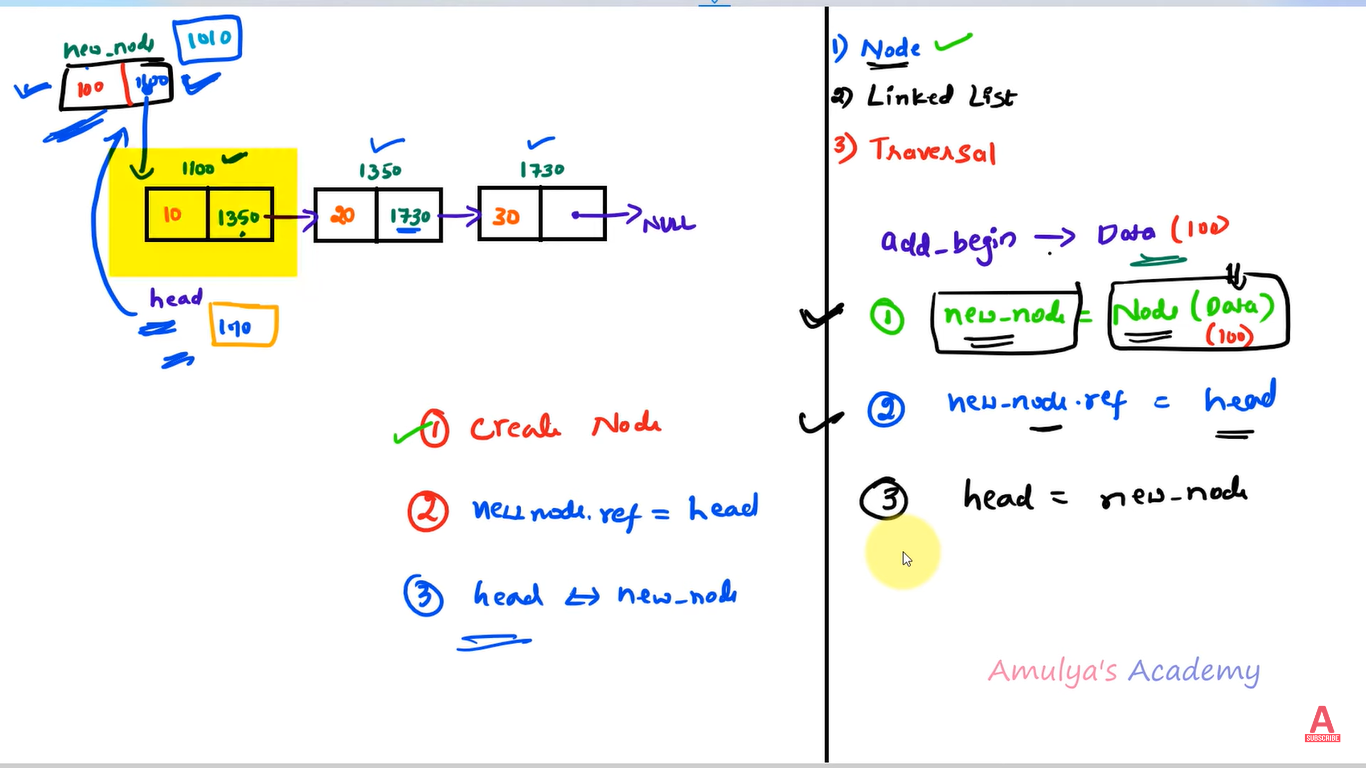 new_node 1010
100 1100
1100 1350 1730
10 1350 20 1730 30 NULL
head
① Create Node
② new node.ref = head
③ head ↔ new_node
1) Node
2) Linked List
3) Traversal
add_begin → Data (100)
① new_node = Node (Data)
(100)
② new_node.ref = head
③ head = new_node
Amulya's Academy
A
SUBSCRIBE